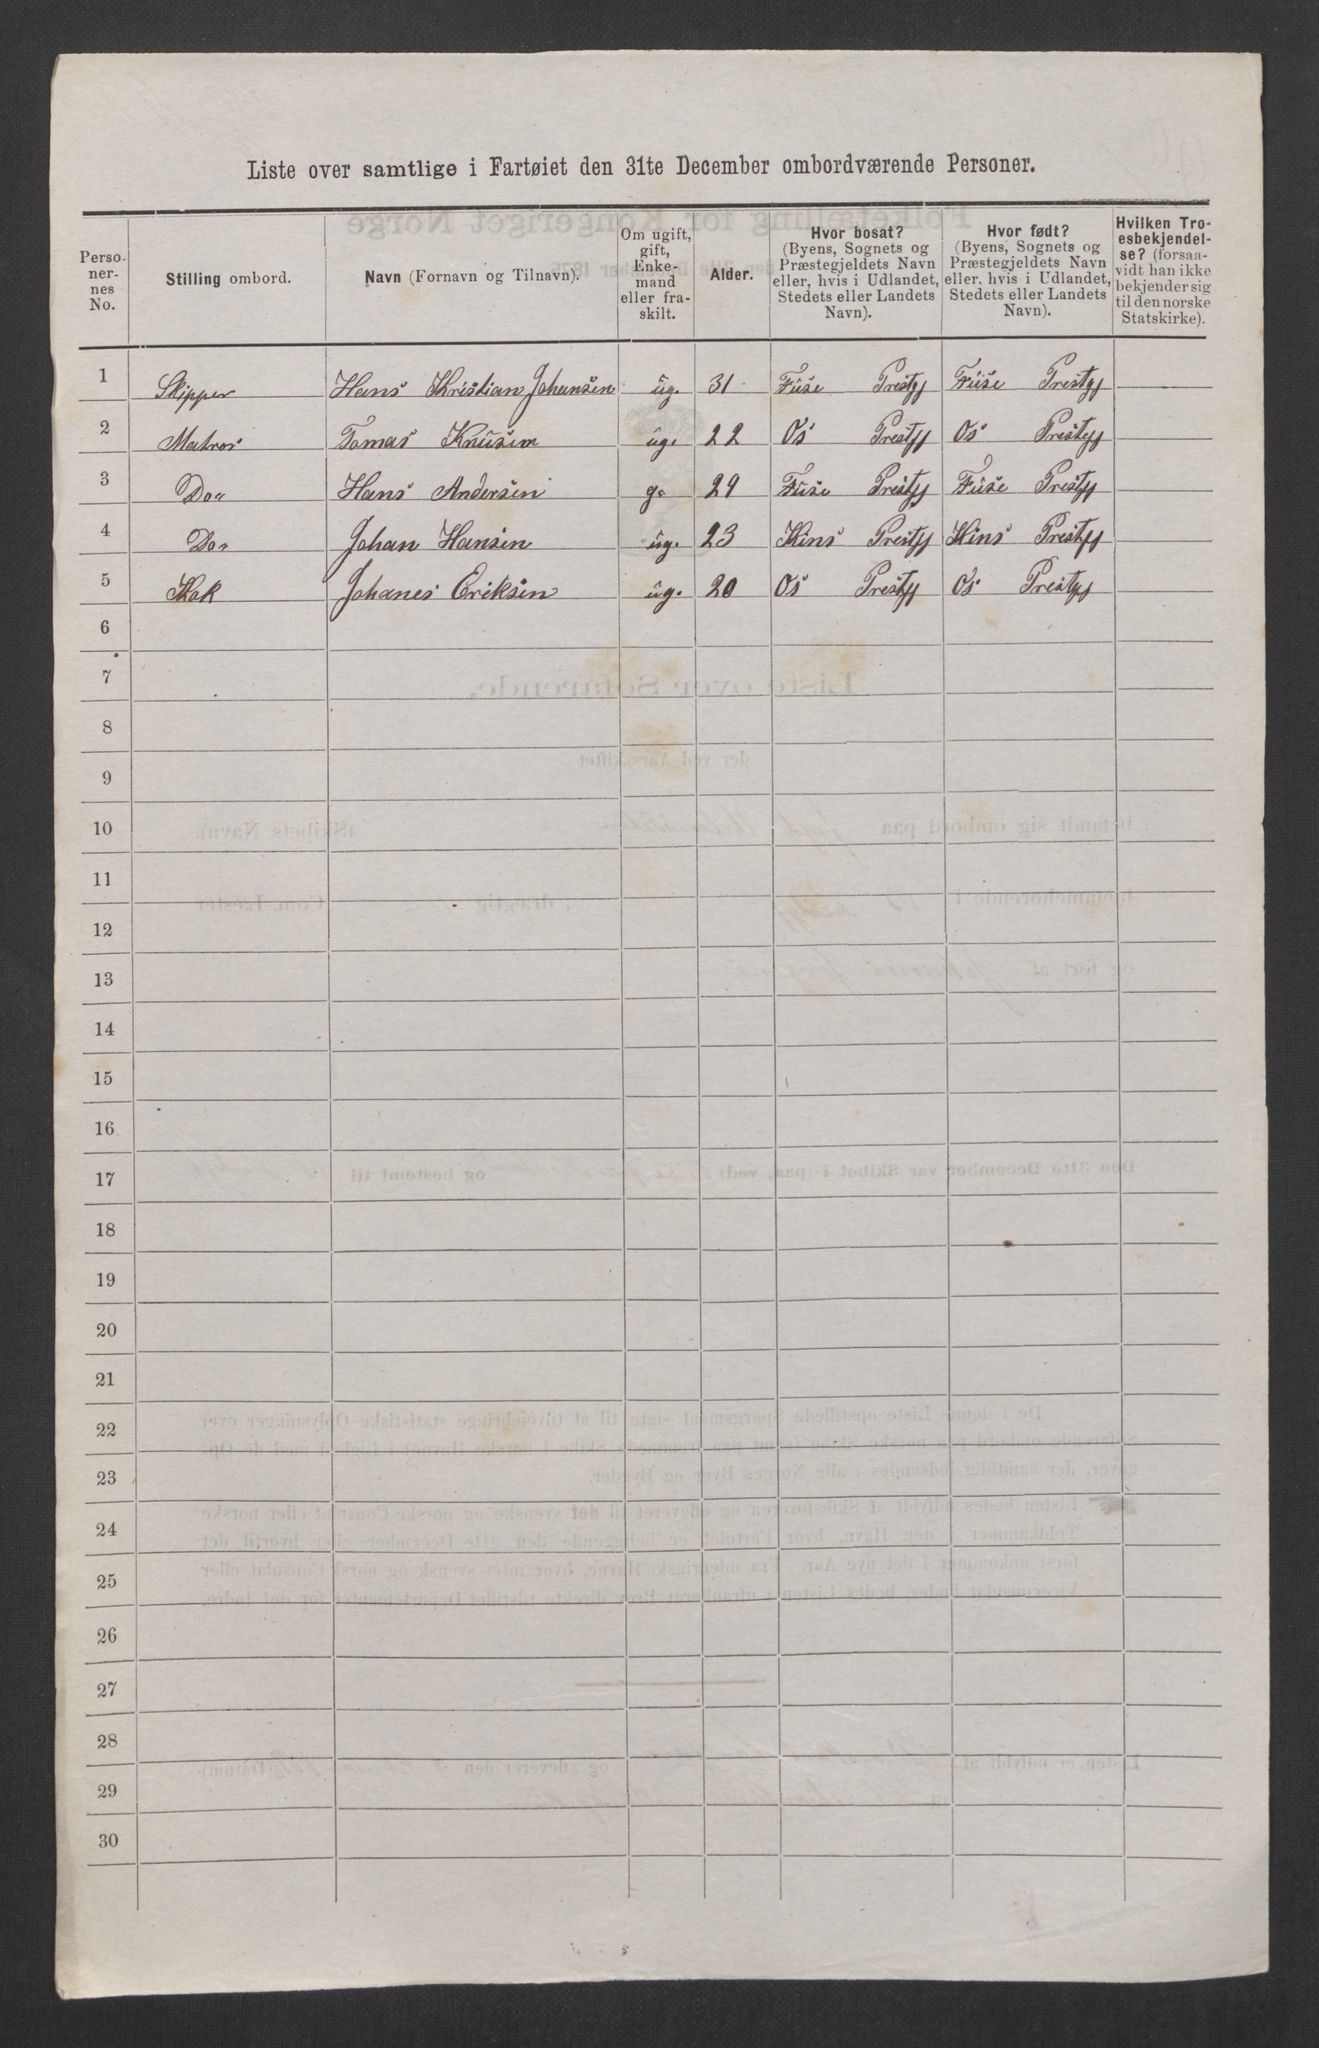 Liste over samtlige i Fartøiet den 31te December ombordværende Personer.
Perso-
ner-
nes
No.
Stilling ombord.
Navn (Fornavn og Tilnavn).
Om ugift,
gift,
Enke-
mand
eller fra-
skilt.
Alder.
Hvor bosat?
(Byens, Sognets og
Præstegjeldets Navn
eller, hvis i Udlandet,
Stedets eller Landets
Navn).
Hvor født?
(Byens, Sognets og
Præstegjeldets Navn
eller, hvis i Udlandet,
Stedets eller Landets
Navn).
Hvilken Tro-
esbekjendel-
se? (forsaa-
vidt han ikke
bekjender sig
til den norske
Statskirke).
1 Skipper Hans Kristian Johansen ug. 31 Fuse Prestgj Fuse Prestgj
2 Matros Tomas Knusen ug. 22 Os Prestgj Os Prestgj
3 Do Hans Andersen g. 29 Fuse Prestgj Fuse Prestgj
4 Do Johan Hansen ug. 23 Kins Prestgj Kins Prestgj
5 Kok Johanes Eriksen ug. 20 Os Prestgj Os Prestgj
6
7
8
9
10
11
12
13
14
15
16
17
18
19
20
21
22
23
24
25
26
27
28
29
30